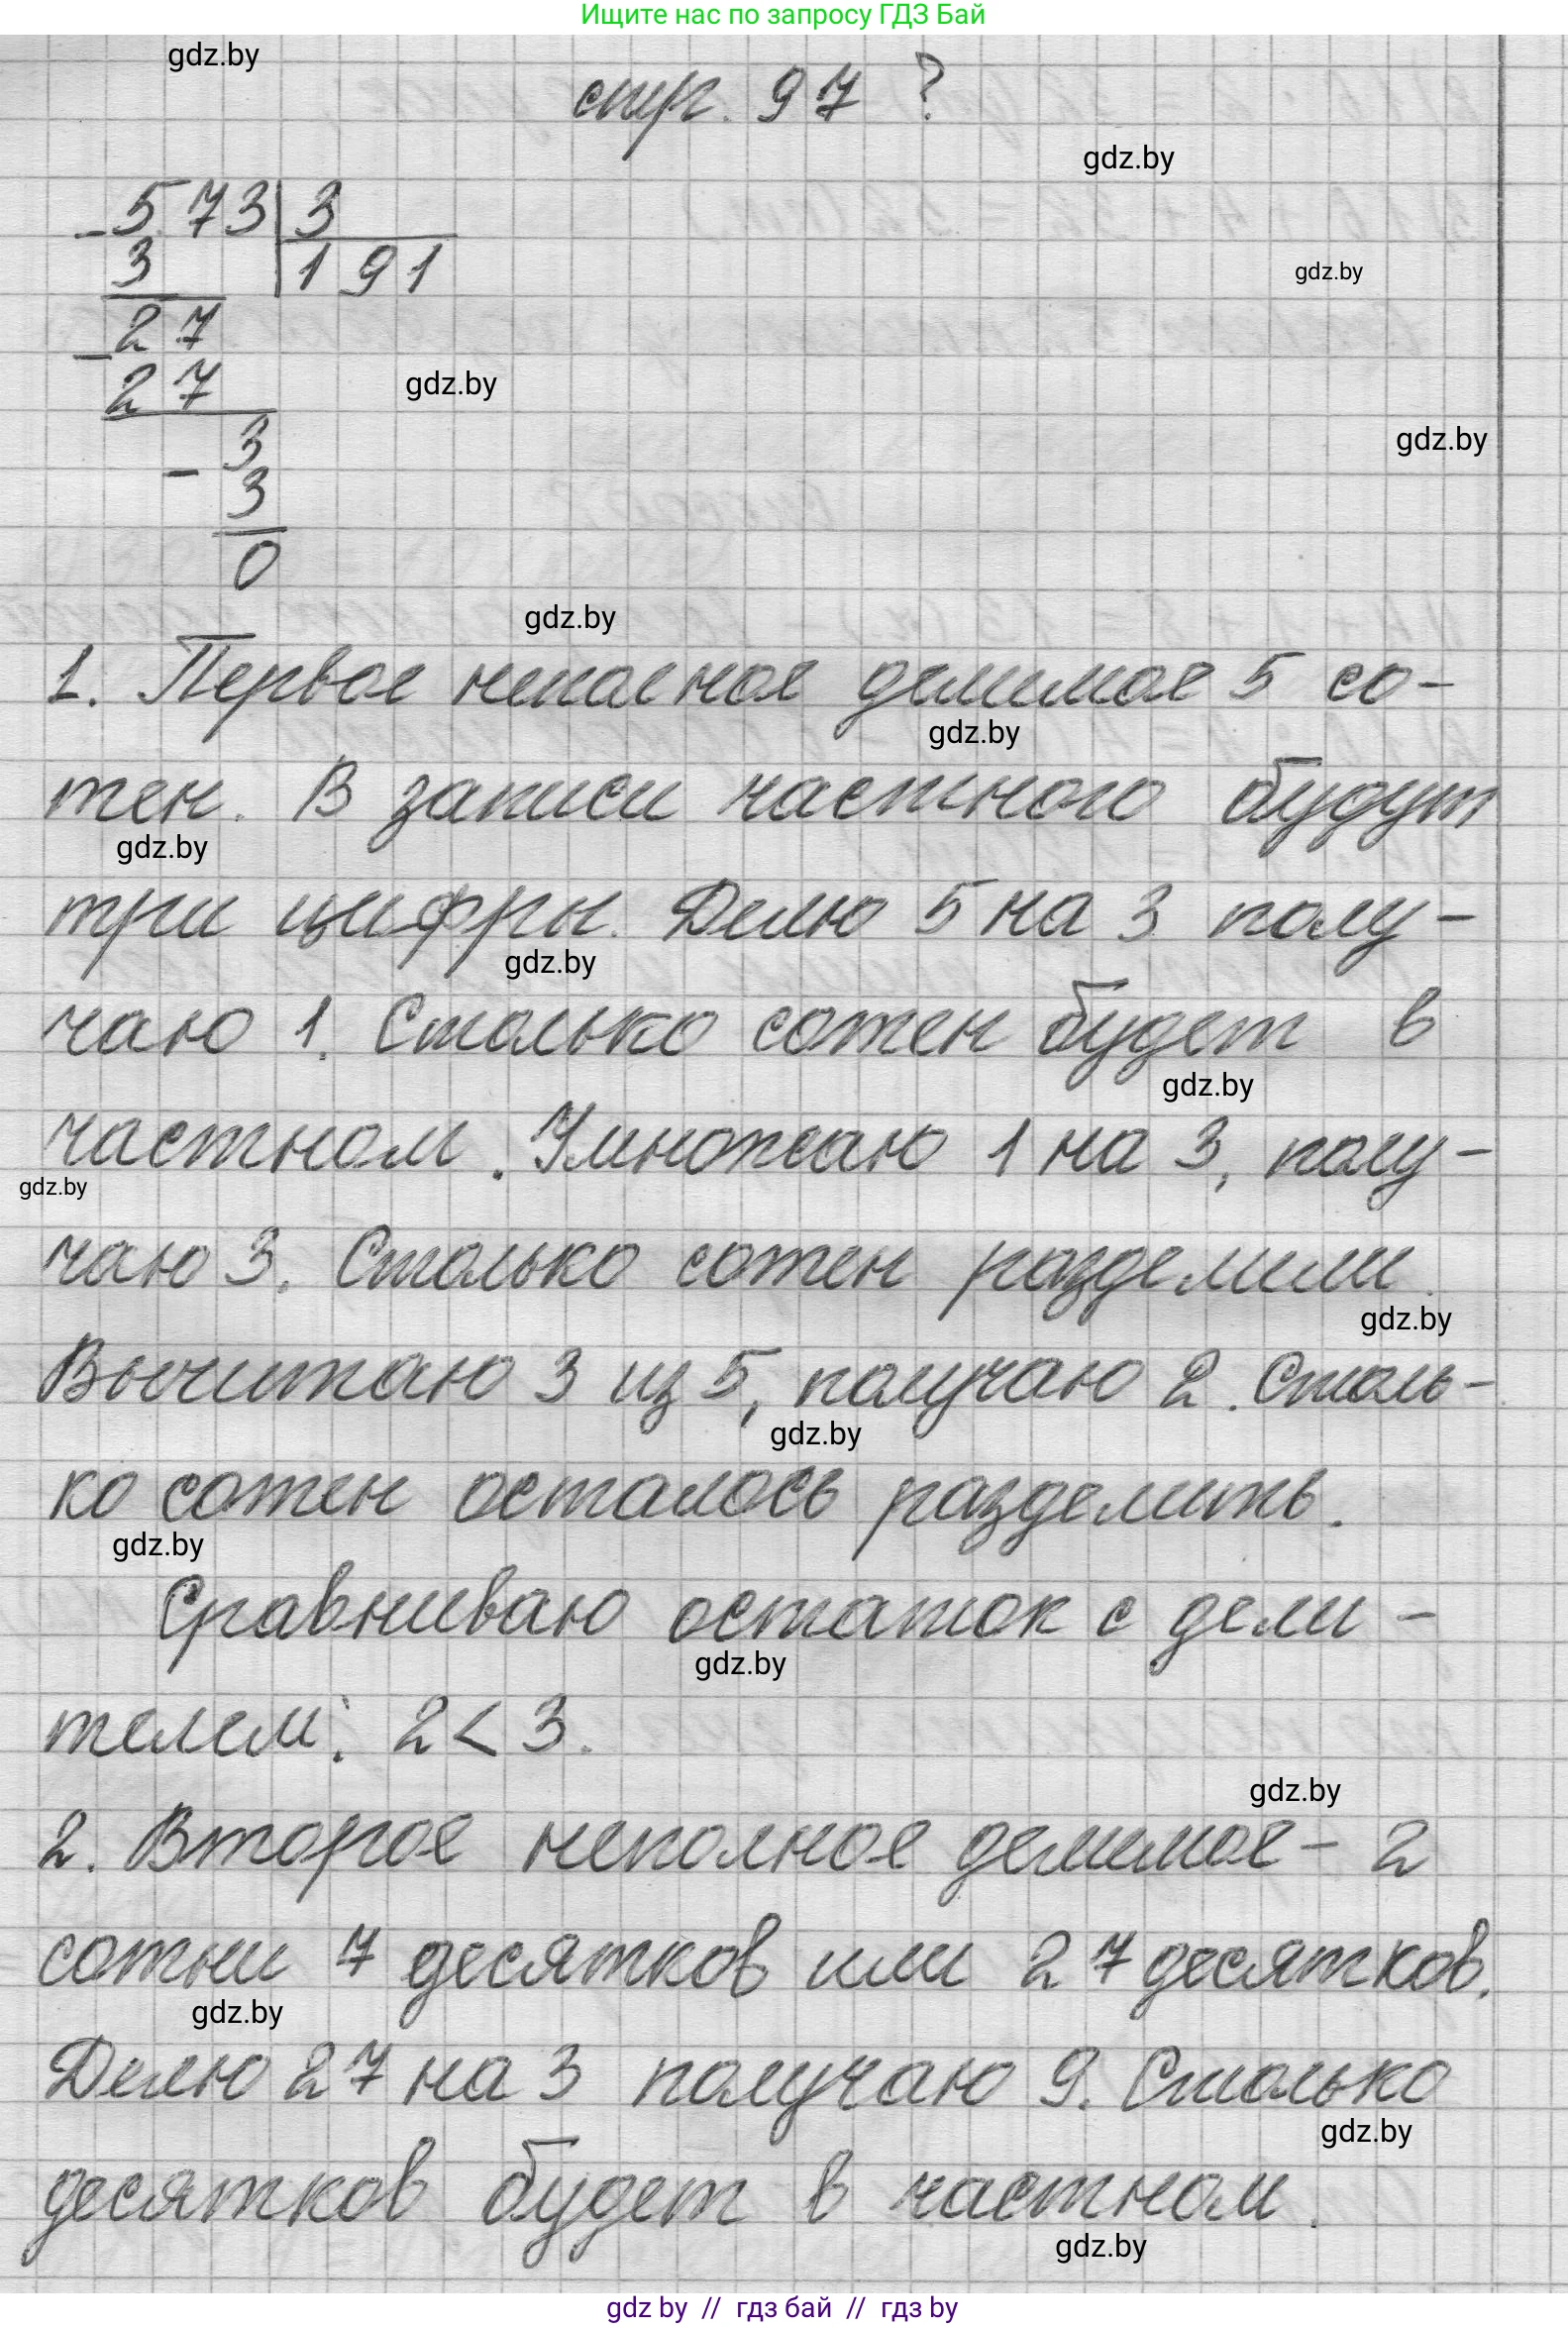 Ищите нас по запросу ГДЗ Бай
gdz.by
стр. 97 ?
gdz.by
- 573 | 3
3 191
gdz.by
- 27
27
gdz.by
gdz.by
- 3
3
0
gdz.by
1. Первое неполное делимое 5 со-
gdz.by
тен. В записи частного будут
gdz.by
три цифры. Делю 5 на 3 полу-
gdz.by
чаю 1. Столько сотен будет в
gdz.by
частном. Умножаю 1 на 3, полу-
gdz.by
чаю 3. Столько сотен разделили.
gdz.by
Вычитаю 3 из 5, получаю 2. Столь-
gdz.by
ко сотен осталось разделить.
gdz.by
Сравниваю остаток с дели-
gdz.by
телем: 2 < 3.
gdz.by
2. Второе неполное делимое - 2
сотни 7 десятков или 27 десятков.
gdz.by
Делю 27 на 3 получаю 9. Столько
gdz.by
десятков будет в частном.
gdz.by
gdz by // гдз бай // гдз by